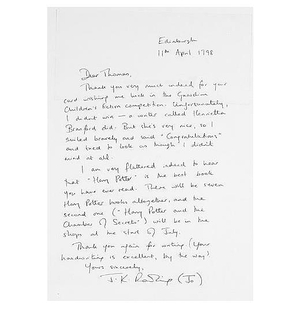 Edinburgh
11th April 1998
Dear Thomas,
Thank you very much indeed for your
card wishing me luck in the Guardian
Children's Fiction competition. Unfortunately,
I didn't win – a writer called Henrietta
Branford did. But she's very nice, so I
smiled bravely and said "Congratulations"
and tried to look as though I didn't
mind at all.
I am very flattered indeed to hear
that "Harry Potter" is the best book
you have ever read. There will be seven
Harry Potter books altogether, and the
second one ("Harry Potter and the
Chamber of Secrets") will be in the
shops at the start of July.
Thank you again for writing (your
handwriting is excellent, by the way)
Yours sincerely,
J.K. Rowling (Jo)